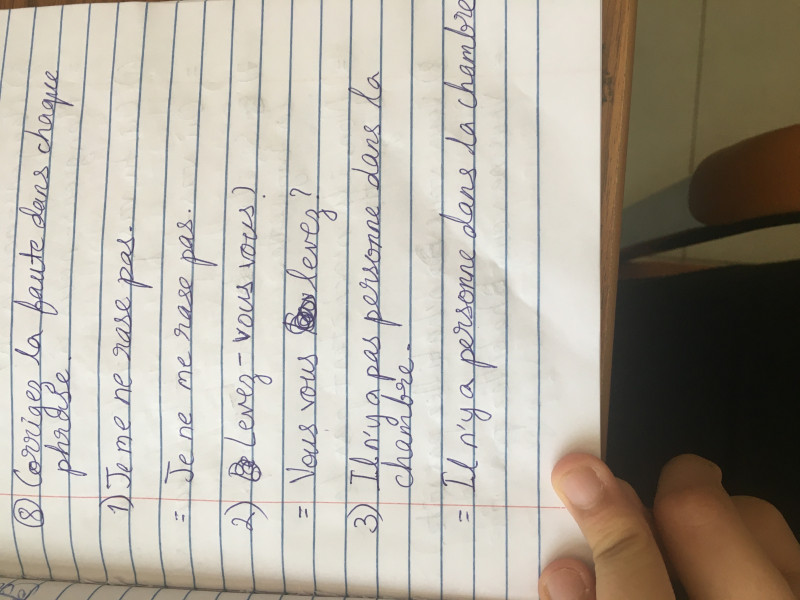 ⑧ Corrigez la faute dans chaque
phrase.
1) Je me ne rase pas.
= Je ne me rase pas.
2) Levez-vous vous)
= Vous vous levez?
3) Il n'y a pas personne dans la
chambre.
= Il n'y a personne dans la chambre